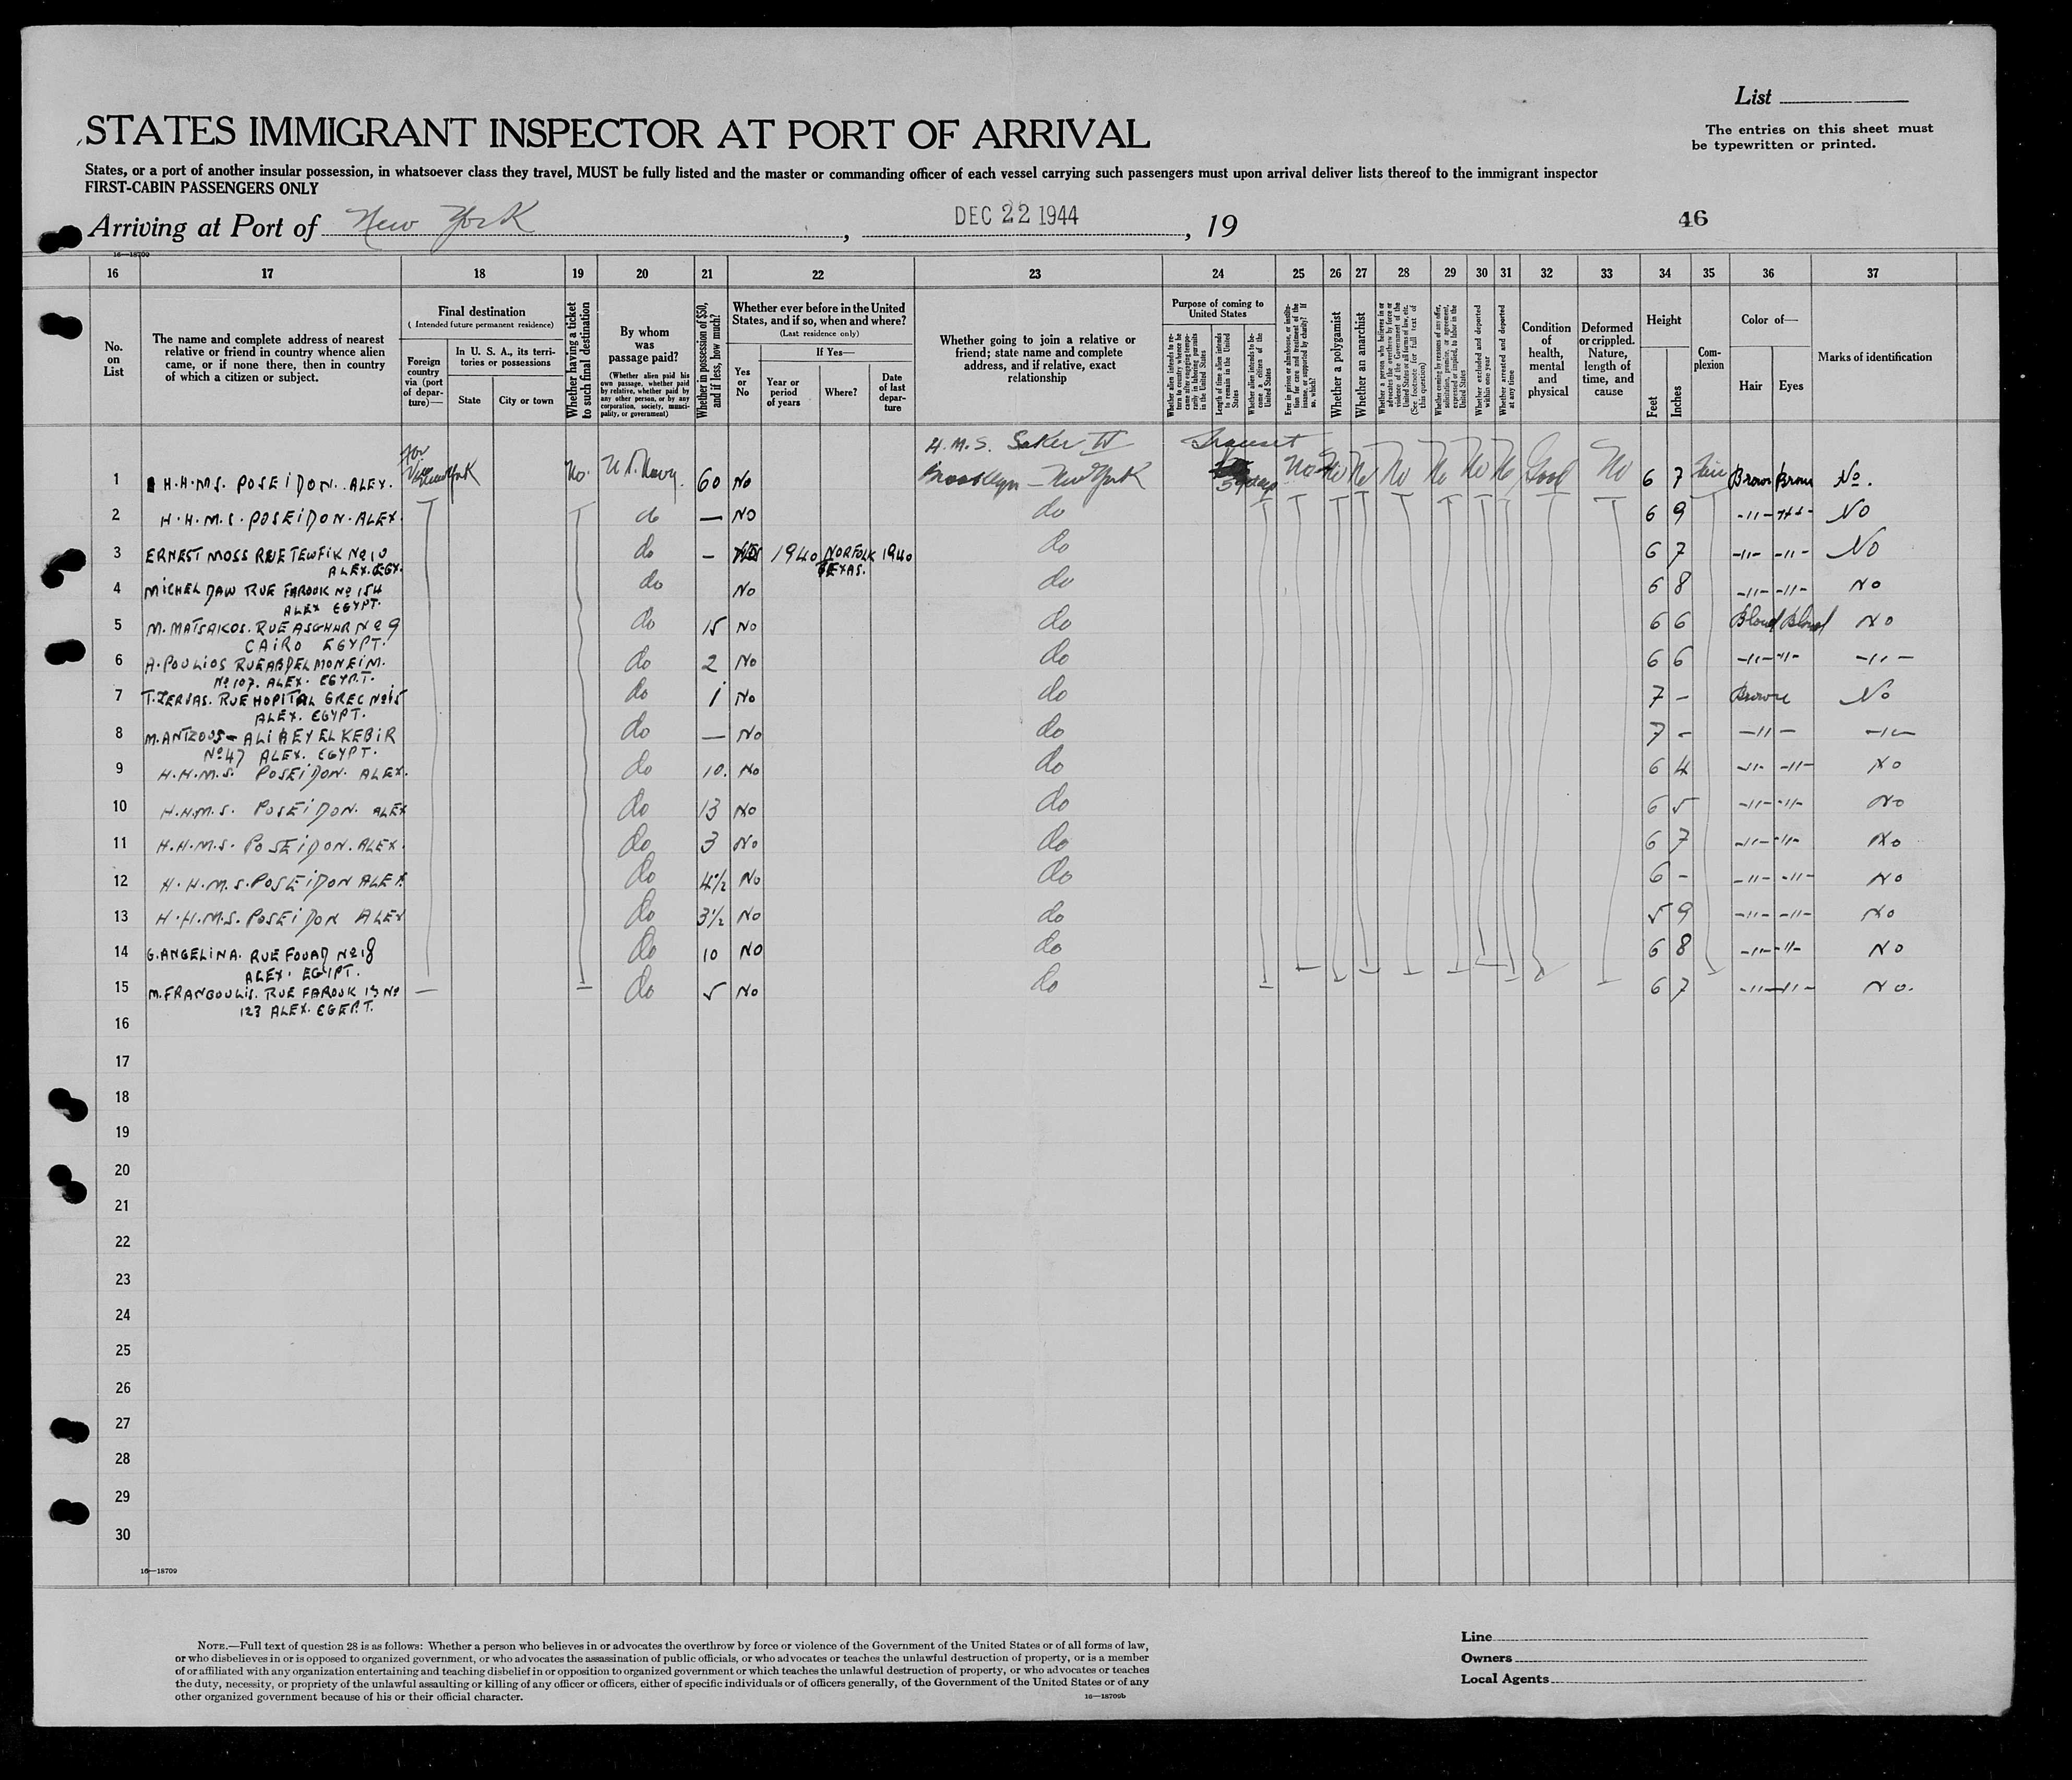 List
STATES IMMIGRANT INSPECTOR AT PORT OF ARRIVAL
The entries on this sheet must
be typewritten or printed.
States, or a port of another insular possession, in whatsoever class they travel, MUST be fully listed and the master or commanding officer of each vessel carrying such passengers must upon arrival deliver lists thereof to the immigrant inspector
FIRST-CABIN PASSENGERS ONLY
Arriving at Port of New York, DEC 22 1944, 19
46
16—18709
16 17 18 19 20 21 22 23 24 25 26 27 28 29 30 31 32 33 34 35 36 37
No. on List
The name and complete address of nearest relative or friend in country whence alien came, or if none there, then in country of which a citizen or subject.
Final destination
( Intended future permanent residence)
Foreign country via (port of departure)—
In U. S. A., its territories or possessions
State
City or town
Whether having a ticket to such final destination
By whom was passage paid?
(Whether alien paid his own passage, whether paid by relative, whether paid by any other person, or by any corporation, society, municipality, or government)
Whether in possession of $50, and if less, how much?
Whether ever before in the United States, and if so, when and where?
(Last residence only)
Yes or No
If Yes—
Year or period of years
Where?
Date of last departure
Whether going to join a relative or friend; state name and complete address, and if relative, exact relationship
Purpose of coming to United States
Whether alien intends to return to country whence he came after engaging temporarily in laboring pursuits in the United States
Length of time alien intends to remain in the United States
Whether alien intends to become a citizen of the United States
Ever in prison or almshouse, or institution for care and treatment of the insane, or supported by charity? If so, which?
Whether a polygamist
Whether an anarchist
Whether a person who believes in or advocates the overthrow by force or violence of the Government of the United States or all forms of law, etc. (See footnote for full text of this question)
Whether coming by reasons of any offer, solicitation, promise, or agreement, expressed or implied, to labor in the United States
Whether excluded and deported within one year
Whether arrested and deported at any time
Condition of health, mental and physical
Deformed or crippled. Nature, length of time, and cause
Height
Feet
Inches
Complexion
Color of—
Hair
Eyes
Marks of identification
H.M.S. Saker IV Transit
1 H.H.M.S. POSEIDON. ALEX. New York No. U.S. Navy. 60 No Brooklyn - New York No No No No No No No Good No 6 7 Fair Brown Brown No.
2 H.H.M.S. POSEIDON. ALEX. do — NO do 6 9 -"- -"- NO
3 ERNEST MOSS RUE TEWFIK No 10 do - 1940 NORFOLK 1940 do 6 7 -"- -"- NO
ALEX. EGY. TEXAS.
4 MICHEL DAW RUE FAROOK No 154 do No do 6 8 -"- -"- NO
ALEX EGYPT.
5 M. MATSAKOS. RUE ASGHAR No 9 do 15 NO do 6 6 Blond Blond NO
CAIRO EGYPT.
6 A. POULIOS RUE ABDEL MONEIM. do 2 No do 6 6 -"- -"- -"-
No 107. ALEX. EGYPT.
7 T. ZERVAS. RUE HOPITAL GREC No 15 do 1 No do 7 - Brown No
ALEX. EGYPT.
8 M. ANTZOUS - ALI BEY EL KEBIR do — No do 7 - -"- -"-
No 47 ALEX. EGYPT.
9 H.H.M.S. POSEIDON. ALEX. do 10. No do 6 4 -"- -"- NO
10 H.H.M.S. POSEIDON. ALEX do 13 No do 6 5 -"- -"- No
11 H.H.M.S. POSEIDON. ALEX. do 3 No do 6 7 -"- -"- No
12 H.H.M.S. POSEIDON ALEX. do 4 1/2 No do 6 - -"- -"- NO
13 H.H.M.S. POSEIDON ALEX do 3 1/2 No do 5 9 -"- -"- NO
14 G. ANGELINA. RUE FOUAD No 18 do 10 NO do 6 8 -"- -"- NO
ALEX. EGYPT.
15 M. FRANGOULIS. RUE FAROUK IS No — do 5 NO do 6 7 -"- -"- NO.
123 ALEX. EGEPT.
16
17
18
19
20
21
22
23
24
25
26
27
28
29
30
16—18709
NOTE.—Full text of question 28 is as follows: Whether a person who believes in or advocates the overthrow by force or violence of the Government of the United States or of all forms of law,
or who disbelieves in or is opposed to organized government, or who advocates the assassination of public officials, or who advocates or teaches the unlawful destruction of property, or is a member
of or affiliated with any organization entertaining and teaching disbelief in or opposition to organized government or which teaches the unlawful destruction of property, or who advocates or teaches
the duty, necessity, or propriety of the unlawful assaulting or killing of any officer or officers, either of specific individuals or of officers generally, of the Government of the United States or of any
other organized government because of his or their official character.
16—18709b
Line
Owners
Local Agents